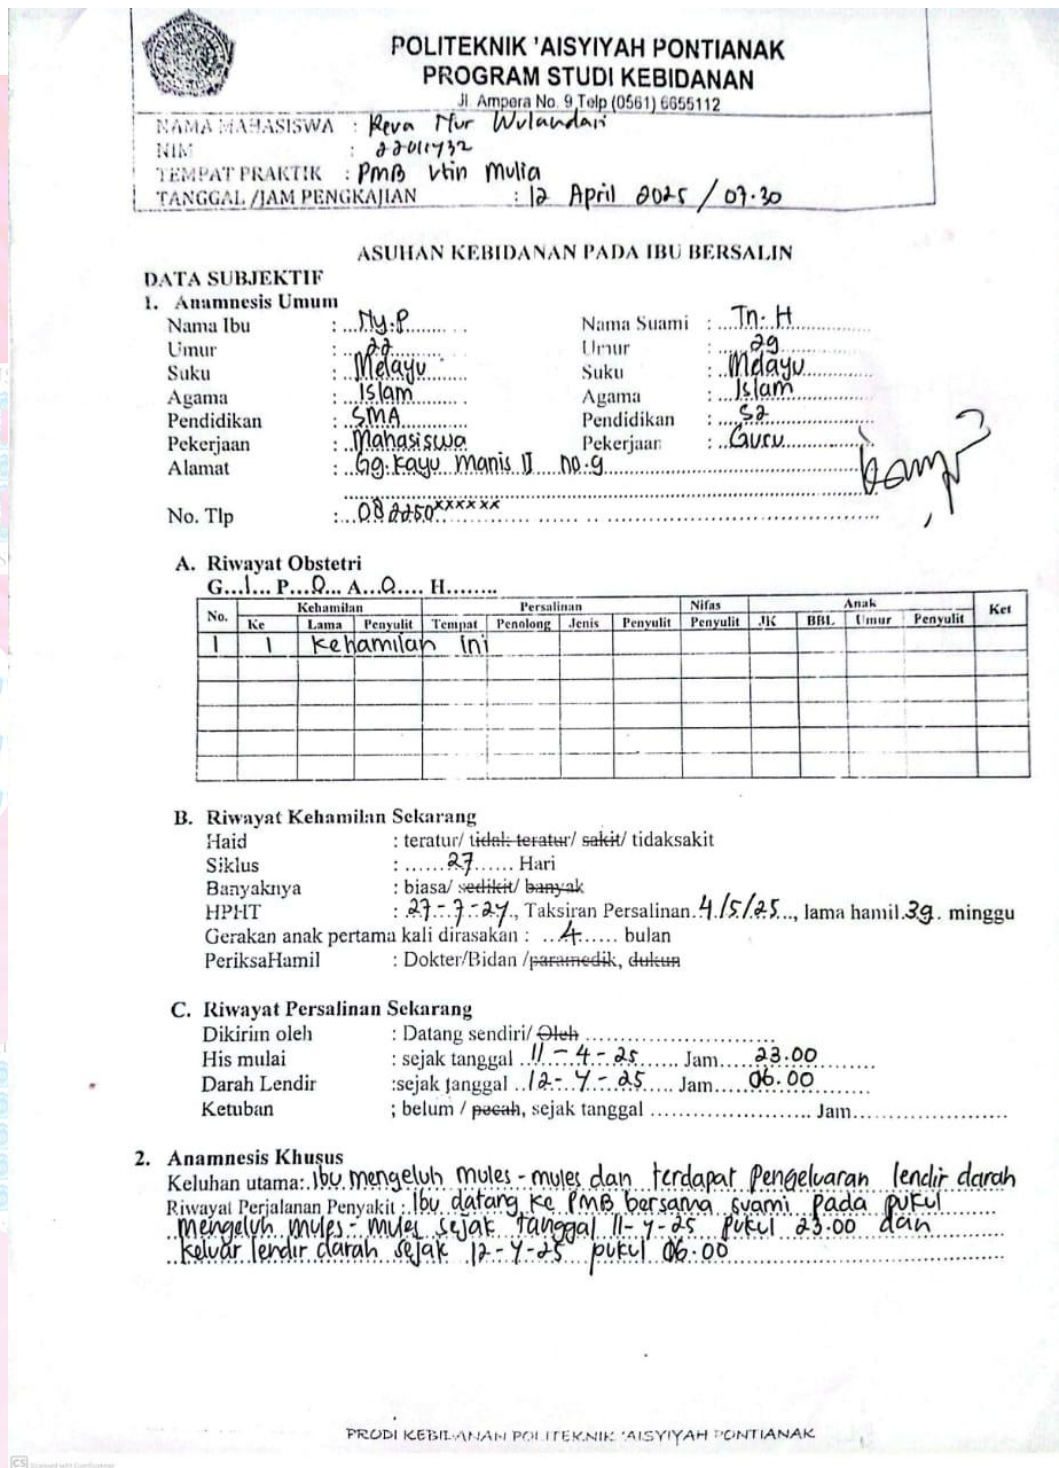 POLITEKNIK 'AISYIYAH PONTIANAK
PROGRAM STUDI KEBIDANAN
Jl. Ampera No. 9 Telp (0561) 6655112
NAMA MAHASISWA : Reva Nur Wulandari
NIM :
TEMPAT PRAKTIK : PMB Utin Mulia
TANGGAL /JAM PENGKAJIAN : 12 April 2025 / 07.30
ASUHAN KEBIDANAN PADA IBU BERSALIN
DATA SUBJEKTIF
1. Anamnesis Umum
Nama Ibu : Ny.P Nama Suami : Tn. H
Umur : 22 Umur : 29
Suku : Melayu Suku : Melayu
Agama : Islam Agama : Islam
Pendidikan : SMA Pendidikan : S2
Pekerjaan : Mahasiswa Pekerjaan : Guru
Alamat : Gg. Kayu manis II no.9
No. Tlp : 082250xxxxxx
A. Riwayat Obstetri
G...1... P...0... A...0.... H........
No. Kehamilan Persalinan Nifas Anak Ket
Ke Lama Penyulit Tempat Penolong Jenis Penyulit Penyulit JK BBL Umur Penyulit
1 1 Kehamilan ini
B. Riwayat Kehamilan Sekarang
Haid : teratur/ tidak teratur/ sakit/ tidaksakit
Siklus : ......27...... Hari
Banyaknya : biasa/ sedikit/ banyak
HPHT : 27-7-24, Taksiran Persalinan 4/5/25..., lama hamil 39. minggu
Gerakan anak pertama kali dirasakan : ...4...... bulan
PeriksaHamil : Dokter/Bidan /paramedik, dukun
C. Riwayat Persalinan Sekarang
Dikirim oleh : Datang sendiri/ Oleh
His mulai : sejak tanggal 11-4-25 Jam 23.00
Darah Lendir :sejak tanggal 12-4-25 Jam 06.00
Ketuban ; belum / pecah, sejak tanggal ...................... Jam.....................
2. Anamnesis Khusus
Keluhan utama: Ibu mengeluh mules-mules dan terdapat Pengeluaran lendir darah
Riwayat Perjalanan Penyakit : Ibu datang ke PMB bersama suami pada pukul
mengeluh mules-mules sejak tanggal 11-4-25 pukul 23.00 dan
keluar lendir darah sejak 12-4-25 pukul 06.00
PRODI KEBIDANAN POLITEKNIK 'AISYIYAH PONTIANAK
CS Scanned with CamScanner